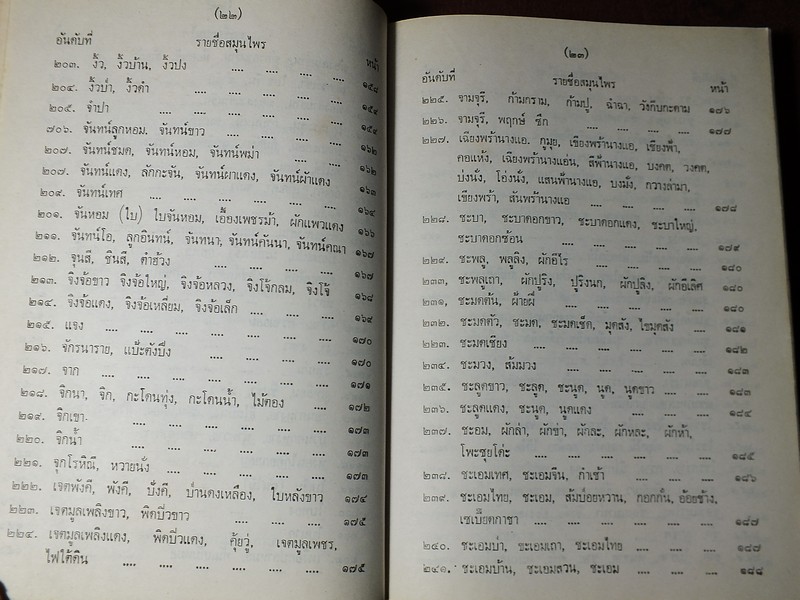 (๒๒)
อันดับที่ รายชื่อสมุนไพร หน้า
๒๐๓. งิ้ว, งิ้วบ้าน, งิ้วปง .... .... .... .... ๑๕๘
๒๐๔. งิ้วป่า, งิ้วดำ .... .... .... .... ๑๕๙
๒๐๕. จำปา .... .... .... .... .... ๑๕๙
๗๐๖. จันทน์ลูกหอม, จันทน์ขาว .... .... .... ๑๖๒
๒๐๗. จันทน์ชมด, จันทน์หอม, จันทน์พม่า .... .... ๑๖๒
๒๐๗. จันทน์แดง, ลักกะจัน, จันทน์ผาแดง, จันทน์ผ้าแดง ๑๖๓
๒๐๙. จันทน์เทศ .... .... .... .... ๑๖๔
๒๐๑. จันหอม (ใบ) ใบจันหอม, เอื้องเพชรม้า, ผักแพวแดง ๑๖๖
๒๑๑. จันทน์โอ, ลูกอินทน์, จันทนา, จันทน์คันนา, จันทน์คณา ๑๖๗
๒๑๒. จุนสี, ชินสี, คำฮ้วง .... .... .... ๑๖๗
๒๑๓. จิงจ้อขาว จิงจ้อใหญ่, จิงจ้อหลวง, จิงโจ้กลม, จิงโจ้ ๑๖๘
๒๑๔. จิงจ้อแดง, จิงจ้อเหลี่ยม, จิงจ้อเล็ก .... .... .... ๑๖๙
๒๑๕. แจง .... .... .... .... .... ๑๗๐
๒๑๖. จักรนาราย, แป๊ะตังปึง .... .... .... ๑๗๐
๒๑๗. จาก .... .... .... .... .... ๑๗๑
๒๑๘. จิกนา, จิก, กะโดนทุ่ง, กะโดนน้ำ, ไม้ตอง .... ๑๗๒
๒๑๙. จิกเขา .... .... .... .... .... ๑๗๓
๒๒๐. จิกน้ำ .... .... .... .... .... ๑๗๓
๒๒๑. จุกโรหิณี, หวายนั่ง .... .... .... .... ๑๗๓
๒๒๒. เจตพังคี, พังคี, ปั๋งคี, ปานดงเหลือง, ใบหลังขาว ๑๗๔
๒๒๓. เจตมูลเพลิงขาว, พิดปิ่วขาว .... .... .... ๑๗๕
๒๒๔. เจตมูลเพลิงแดง, พิดปิ่วแดง, คุ้ยวู่, เจตมูลเพชร,
ไฟใต้ดิน .... .... .... .... .... .... ๑๗๕
(๒๓)
อันดับที่ รายชื่อสมุนไพร หน้า
๒๒๕. จามจุรี, ก้ามกราม, ก้ามปู, ฉำฉา, วังกับกะดาม ๑๗๖
๒๒๖. จามจุรี, พฤกษ์ ซึก .... .... .... .... ๑๗๗
๒๒๗. เฉียงพร้านางแอ, กูมุย, เขียงพร้านางแอ, เขียงพ้า,
คอแห้ง, เฉียงพร้านางแอ่น, สีฟ้านางแอ, บงคด, วงคต,
บ่งนั่ง, โอ่งนั่ง, แสนพ้านางแอ, บงมัง, กวางล่ามา,
เขียงพร้า, สันพร้านางแอ .... .... .... .... ๑๗๘
๒๒๘. ชะบา, ชะบาดอกขาว, ชะบาดอกแดง, ชะบาใหญ่,
ชะบาดอกซ้อน .... .... .... .... .... ๑๗๙
๒๒๙. ชะพลู, พลูลิง, ผักอีไร .... .... .... .... ๑๘๐
๒๓๓, ชะพลูเถา, ผักปูริง, ปูริงนก, ผักปูลิง, ผักอีเลิศ ๑๘๐
๒๓๑, ชะมดต้น, ฝ้ายผี .... .... .... .... ๑๘๐
๒๓๒. ชะมดตัว, ชะมด, ชะมดเช็ด, มุดสัง, ไขมุดสัง .... ๑๘๑
๒๒๓. ชะมดเชียง .... .... .... .... .... ๑๘๒
๒๓๔. ชะมวง, ส้มมวง .... .... .... .... ๑๘๓
๒๓๕. ชะลูดขาว, ชะลูด, ชะนูด, นูด, นูดขาว .... .... ๑๘๓
๒๓๖. ชะลูดแดง, ชะนูด, นูดแดง .... .... .... ๑๘๔
๒๓๗. ชะอม, ผักลำ, ผักขา, ผักละ, ผักหละ, ผักห้า,
โพะซุยโด่ะ .... .... .... .... .... .... ๑๘๕
๒๓๘. ชะเอมเทศ, ชะเอมจีน, กำเช้า .... .... .... ๑๘๖
๒๓๙. ชะเอมไทย, ชะเอม, ส้มป่อยหวาน, กอกกั๋น, อ้อยช้าง,
เซเบี๊ยดกาชา .... .... .... .... .... ๑๘๗
๒๔๐. ชะเอมป่า, ชะเอมเถา, ชะเอมไทย .... .... .... ๑๘๗
๒๔๑. ชะเอมบ้าน, ชะเอมสวน, ชะเอม .... .... .... ๑๘๘